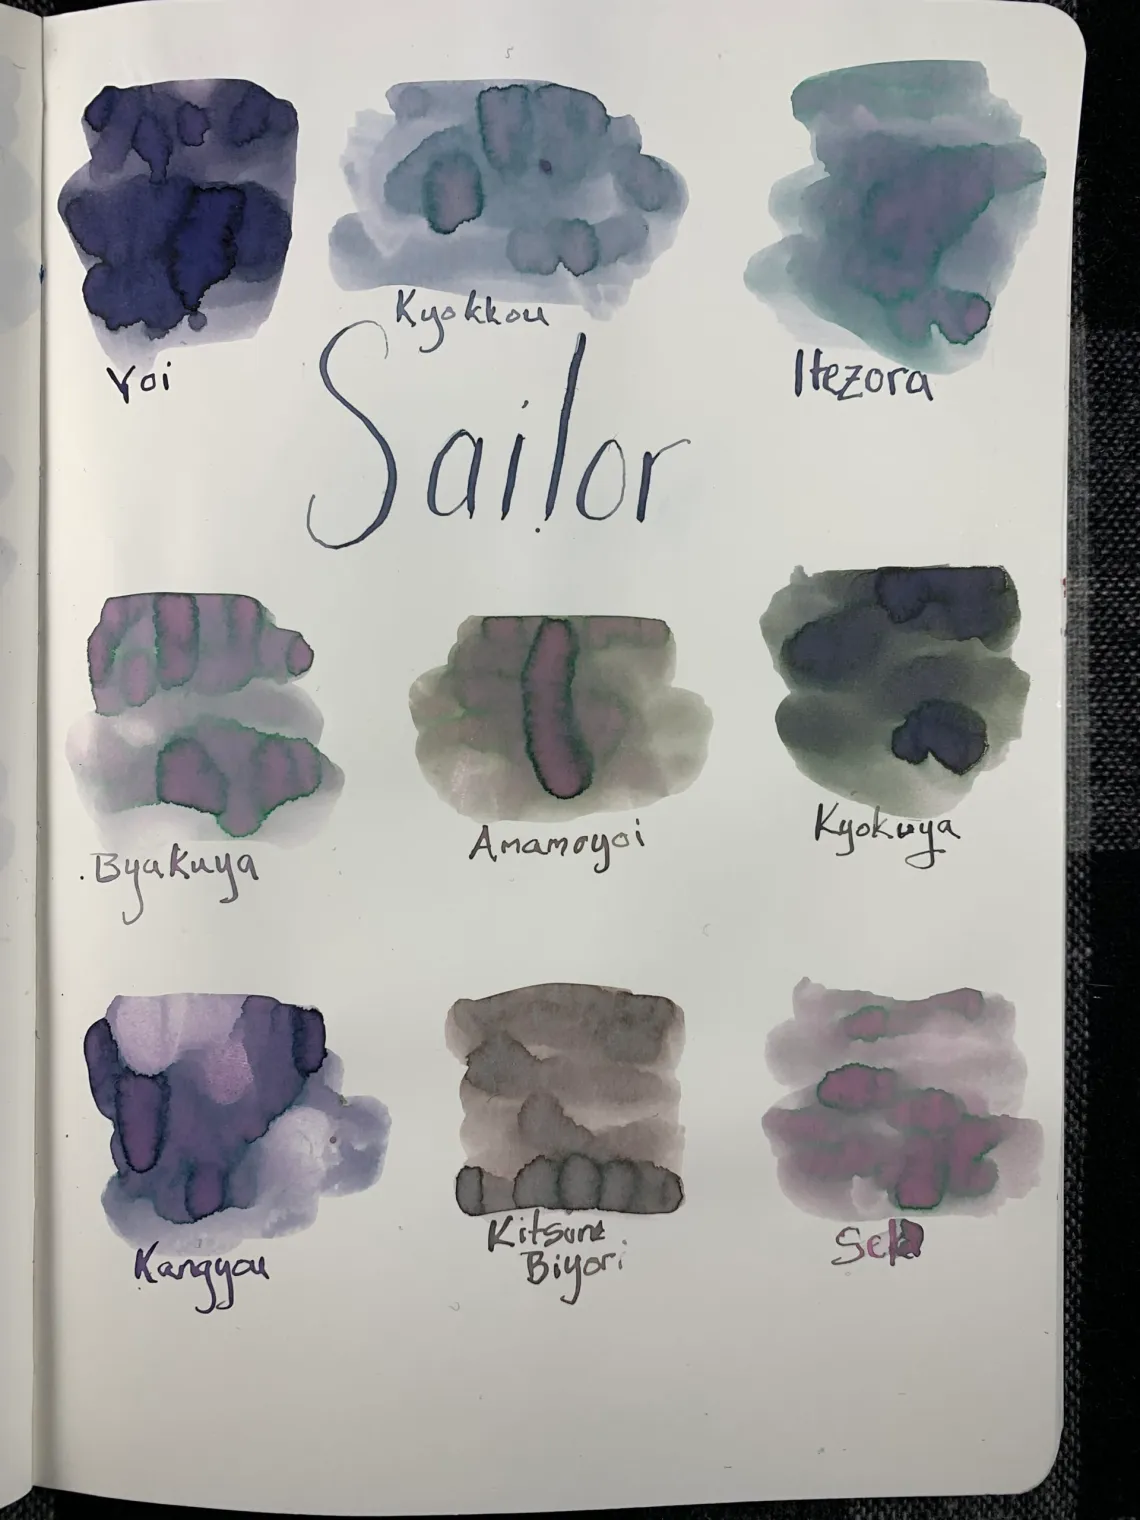 Yoi
Kyokkou
Itezora
Sailor
Byakuya
Amamoyoi
Kyokuya
Kangyou
Kitsune
Biyori